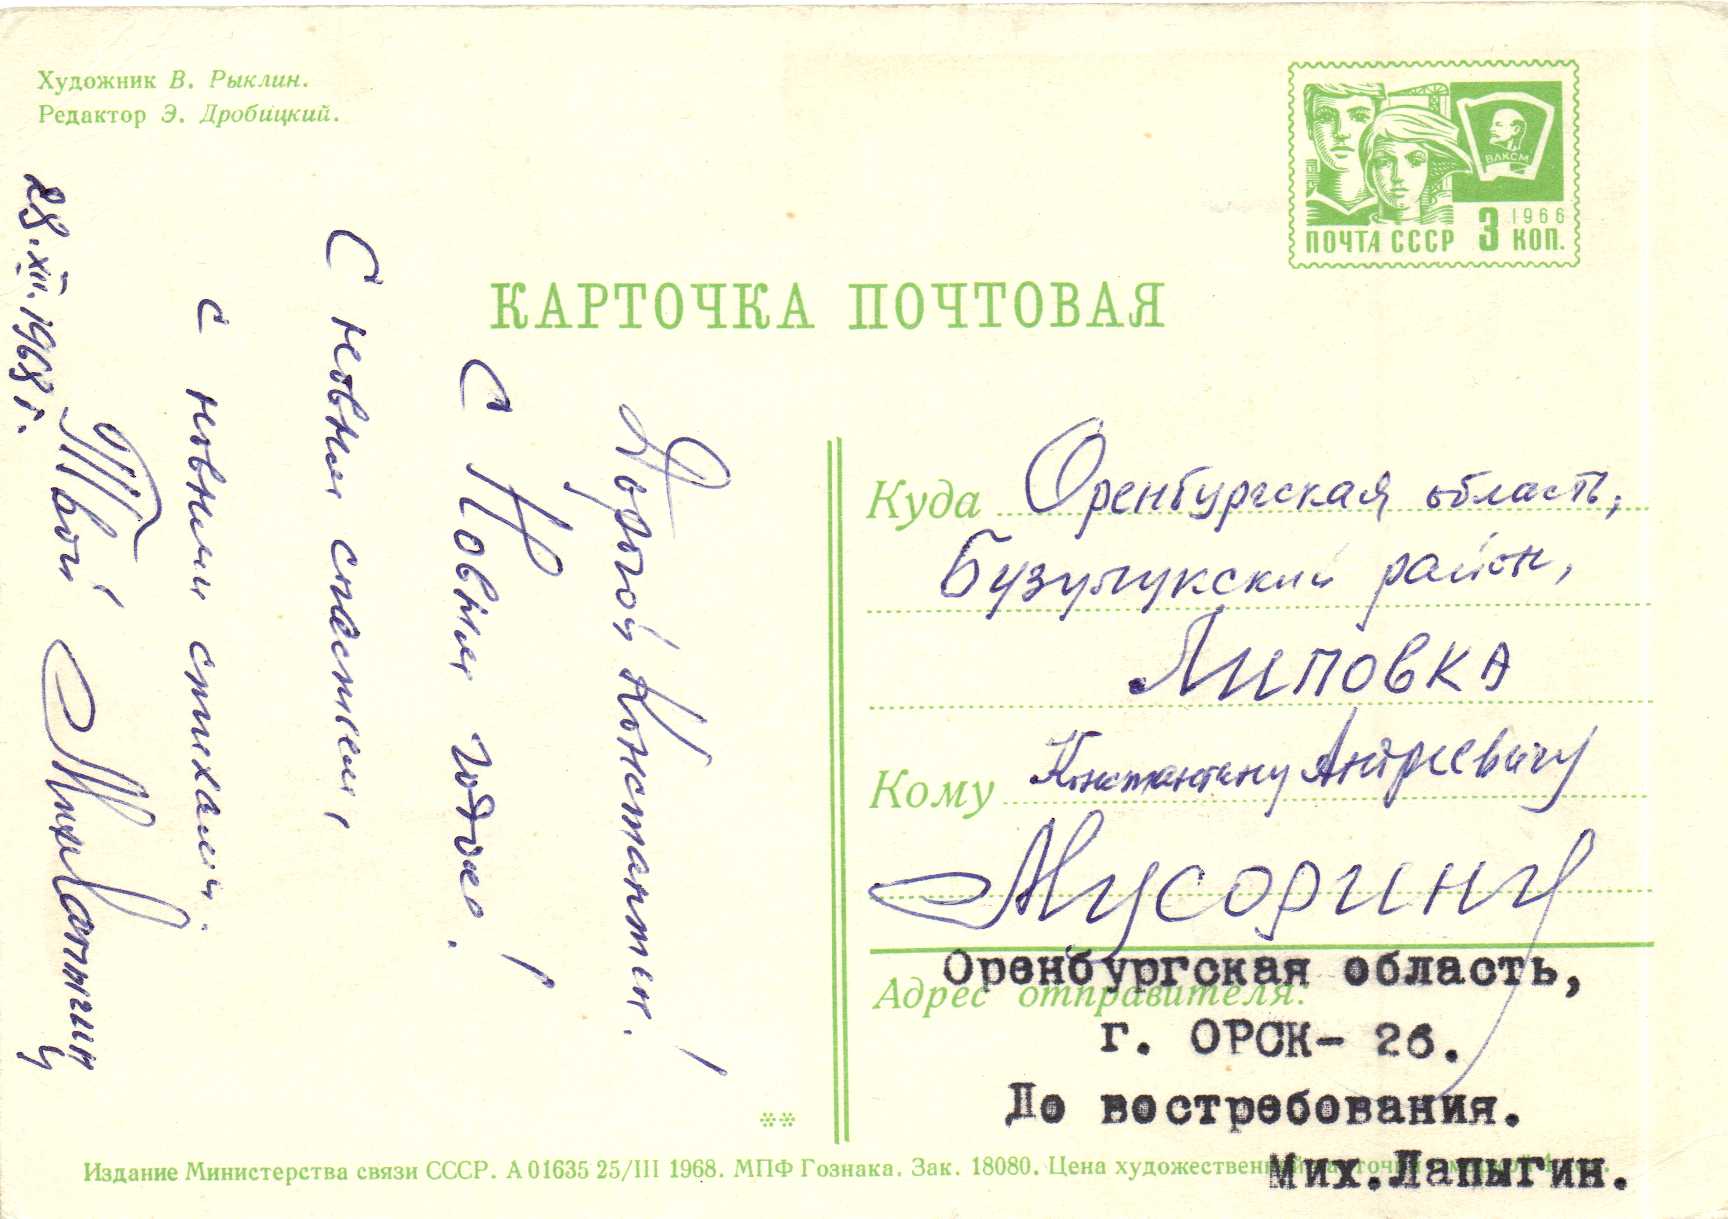 Художник В. Рыклин.
Редактор Э. Дробицкий.
ВЛКСМ
1966
ПОЧТА СССР 3 КОП.
КАРТОЧКА ПОЧТОВАЯ
Дорогой Константин!
С Новым годом!
С новым счастьем,
с новыми стихами.
Твой Мих Лапыгин
28.XII.1968 г.
Куда Оренбургская область,
Бузулукский район,
Липовка
Кому Константину Андреевичу
Мусорину
Адрес отправителя:
Оренбургская область,
г. ОРСК- 26.
До востребования.
Мих.Лапыгин.
**
Издание Министерства связи СССР. А 01635 25/III 1968. МПФ Гознака. Зак. 18080. Цена художественной карточки с маркой 4 коп.